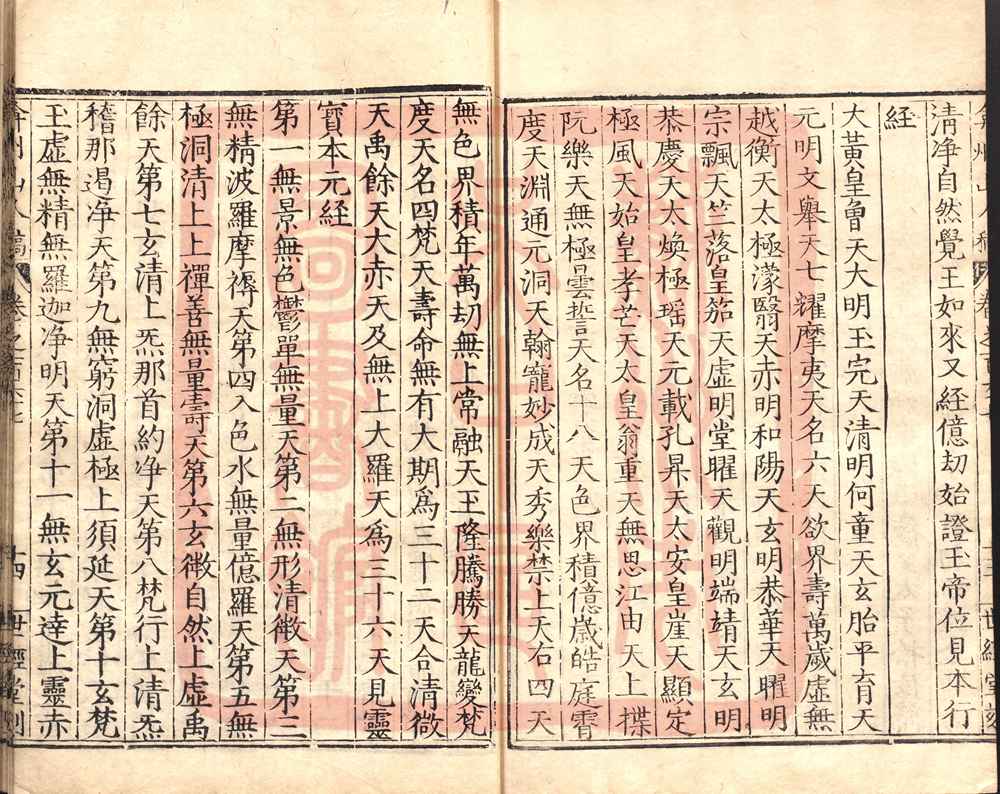 清净自然覺王如來又經億劫始證玉帝位見本行
経
大黃皇曾天大明玉完天清明何童天玄胎平育天
元明文舉天七耀摩夷天名六天欲界壽萬歲虛無
越衡天太極濛翳天赤明和陽天玄明恭華天曜明
宗飄天竺落皇笳天虛明堂曜天觀明端靖天玄明
恭慶天太煥極瑶天元載孔昇天太安皇崖天顯定
極風天始皇孝芒天太皇翁重天無思江由天上楪
阮樂天無極曇誓天名十八天色界積億歲皓庭霄
度天淵通元洞天翰寵妙成天秀樂禁上天右四天
無色界積年萬刧無上常融天王隆騰勝天龍變梵
度天名四梵天壽命無有大期為三十二天合清微
天禹餘天大赤天及無上大羅天為三十六天見靈
寳本元経
第一無景無色鬱單無量天第二無形清微天第三
無精波羅摩褥天第四入色水無量億羅天第五無
極洞清上上禪善無量壽天第六玄微自然上虛禹
餘天第七玄清上炁那首約净天第八梵行上清炁
稽那遏净天第九無窮洞虛極上須延天第十玄梵
玉虛無精無羅迦净明天第十一無玄元逹上靈赤
弇州山人稿 卷之百六七 十四 世經堂刻